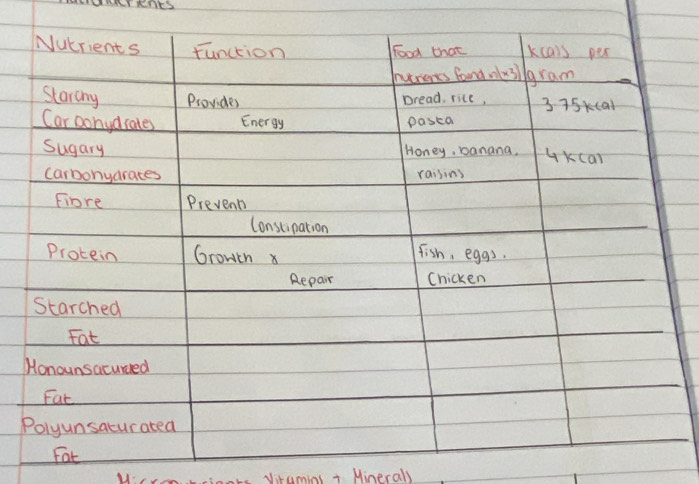 Nutrients Function Food that Kcals per
nutrients found in (x3) gram
Starchy Provides Bread, rice, 3.75 Kcal
Carbohydrates Energy pasta
Sugary Honey, banana, 4 Kcal
carbohydrates raisins
Fibre Prevents
Constipation
Protein Growth & fish, eggs.
Repair Chicken
Starched
Fat
Monounsaturated
Fat
Polyunsaturated
Fat
Vitamins + Minerals